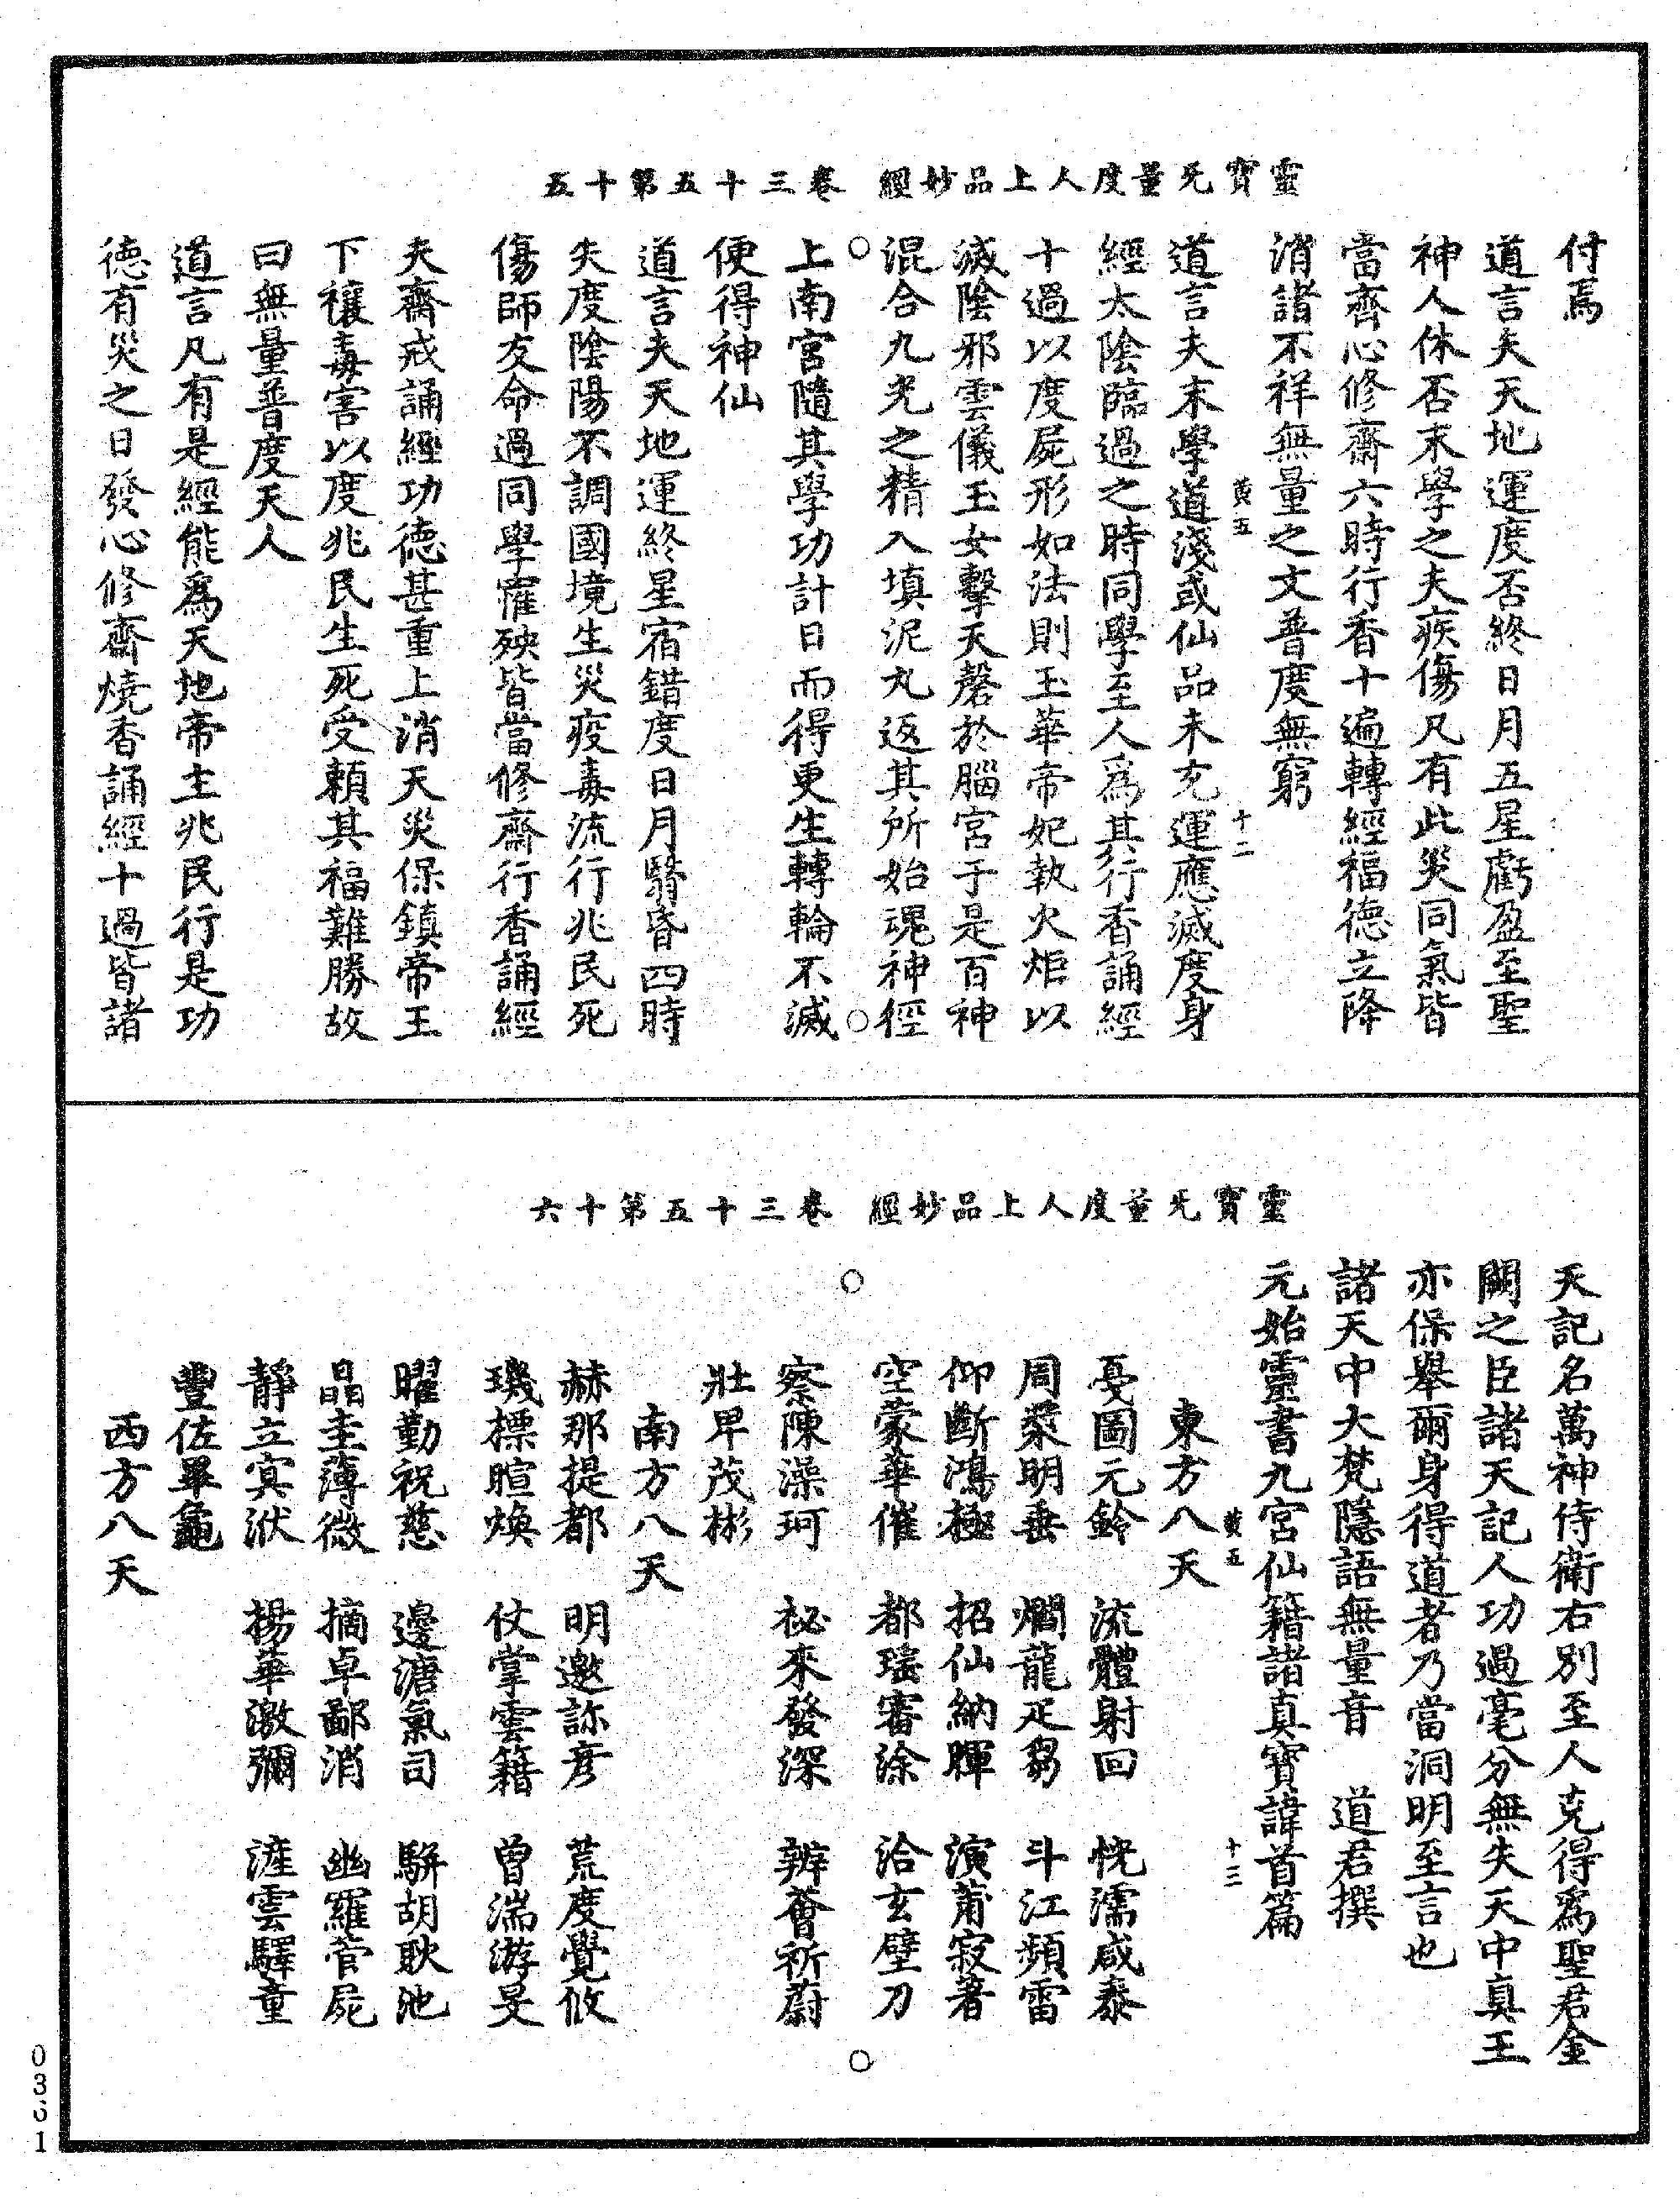 靈寶无量度人上品妙經　卷三十五第十五
付焉
道言夫天地運度否終日月五星虧盈至聖
神人休否末學之夫疾傷凡有此災同氣皆
當齊心修齋六時行香十遍轉經福德立降
消諸不祥無量之文普度無窮
黃五　十二
道言夫末學道淺或仙品未充運應滅度身
經太陰臨過之時同學至人爲其行香誦經
十過以度屍形如法則玉華帝妃執火炬以
滅陰邪雲儀玉女擊天磬於腦宮于是百神
混合九光之精入填泥丸返其所始魂神徑
上南宮隨其學功計日而得更生轉輪不滅
便得神仙
道言夫天地運終星宿錯度日月翳昏四時
失度陰陽不調國境生災疫毒流行兆民死
傷師友命過同學罹殃皆當修齋行香誦經
夫齋戒誦經功德甚重上消天災保鎮帝王
下穰毒害以度兆民生死受賴其福難勝故
曰無量普度天人
道言凡有是經能爲天地帝主兆民行是功
德有災之日發心修齋燒香誦經十過皆諸
靈寶无量度人上品妙經　卷三十五第十六
天記名萬神侍衛右別至人克得爲聖君金
闕之臣諸天記人功過毫分無失天中真王
亦保舉爾身得道者乃當洞明至言也
諸天中大梵隱語無量音　道君撰
元始靈書九宮仙籍諸真寶諱首篇
黃五　十三
東方八天
憂圖元鈴　流體射回　恍濡咸泰
周桑明垂　爛龍疋芻　斗江頻雷
仰斷鴻極　招仙納暉　演莆寂著
空蒙華催　都瑤審涂　洽玄壁刀
察陳澡珂　祕來發深　辨薈祈蔚
壯甲茂彬
南方八天
赫那提都　明邀訬彦　荒度覺攸
璣標暄煥　仗掌雲籍　曾湍游旻
曜勤祝慈　邊溏氣司　駢胡耿池
晶圭薄微　摘卓鄙消　幽羅管屍
靜立寞洑　楊華激彌　漄雲驛童
豐佐單龜
西方八天
0361